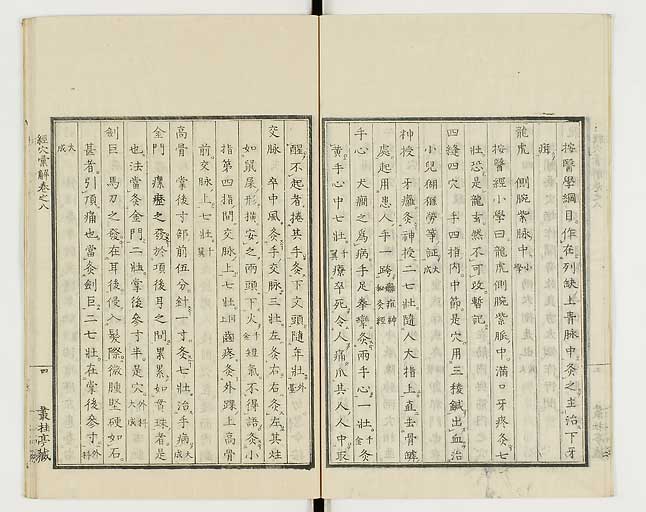 按醫學綱目作在列缺上青脉中灸之主治下牙
痛
龍虎　側腕紫脉中小學
按醫經小學曰龍虎側腕紫脈中滿口牙疼灸七
壯恐是龍玄然不可攷暫記
四縫四穴　手四指内中節是穴用三稜鍼出血治
小兒猢猻勞等証大成
神授　牙癰灸神授二七壯隨人大指上直去骨罅
處起用患人手一跨
手心　犬癇之爲病手足拳攣灸兩手心一壯千金灸
黄手心中七壯千翼療卒死令人痛爪其人人中取
醒不起者捲其手灸下文頭隨年壯外臺
交脉　卒中風灸手交脉三壯左灸右右灸左其炷
如鼠屎形横安之兩頭下火千金短氣不得語灸小
指第四指間交脉上七壯同上齒疼灸外踝上高骨
前交脉上七壯千翼
高骨　掌後寸部前伍分針一寸灸七壯治手病大成
金門　瘰癧之發於項後耳之間累累如貫珠者是
也法當灸金門二壯掌後參寸半是穴外科大成
劍巨　馬刀之發在耳後侵入髮際微腫堅硬如石
甚者引頂痛也當灸劍巨二七壯在掌後參寸外科
大成
經穴彙解卷之八
四
叢桂亭藏